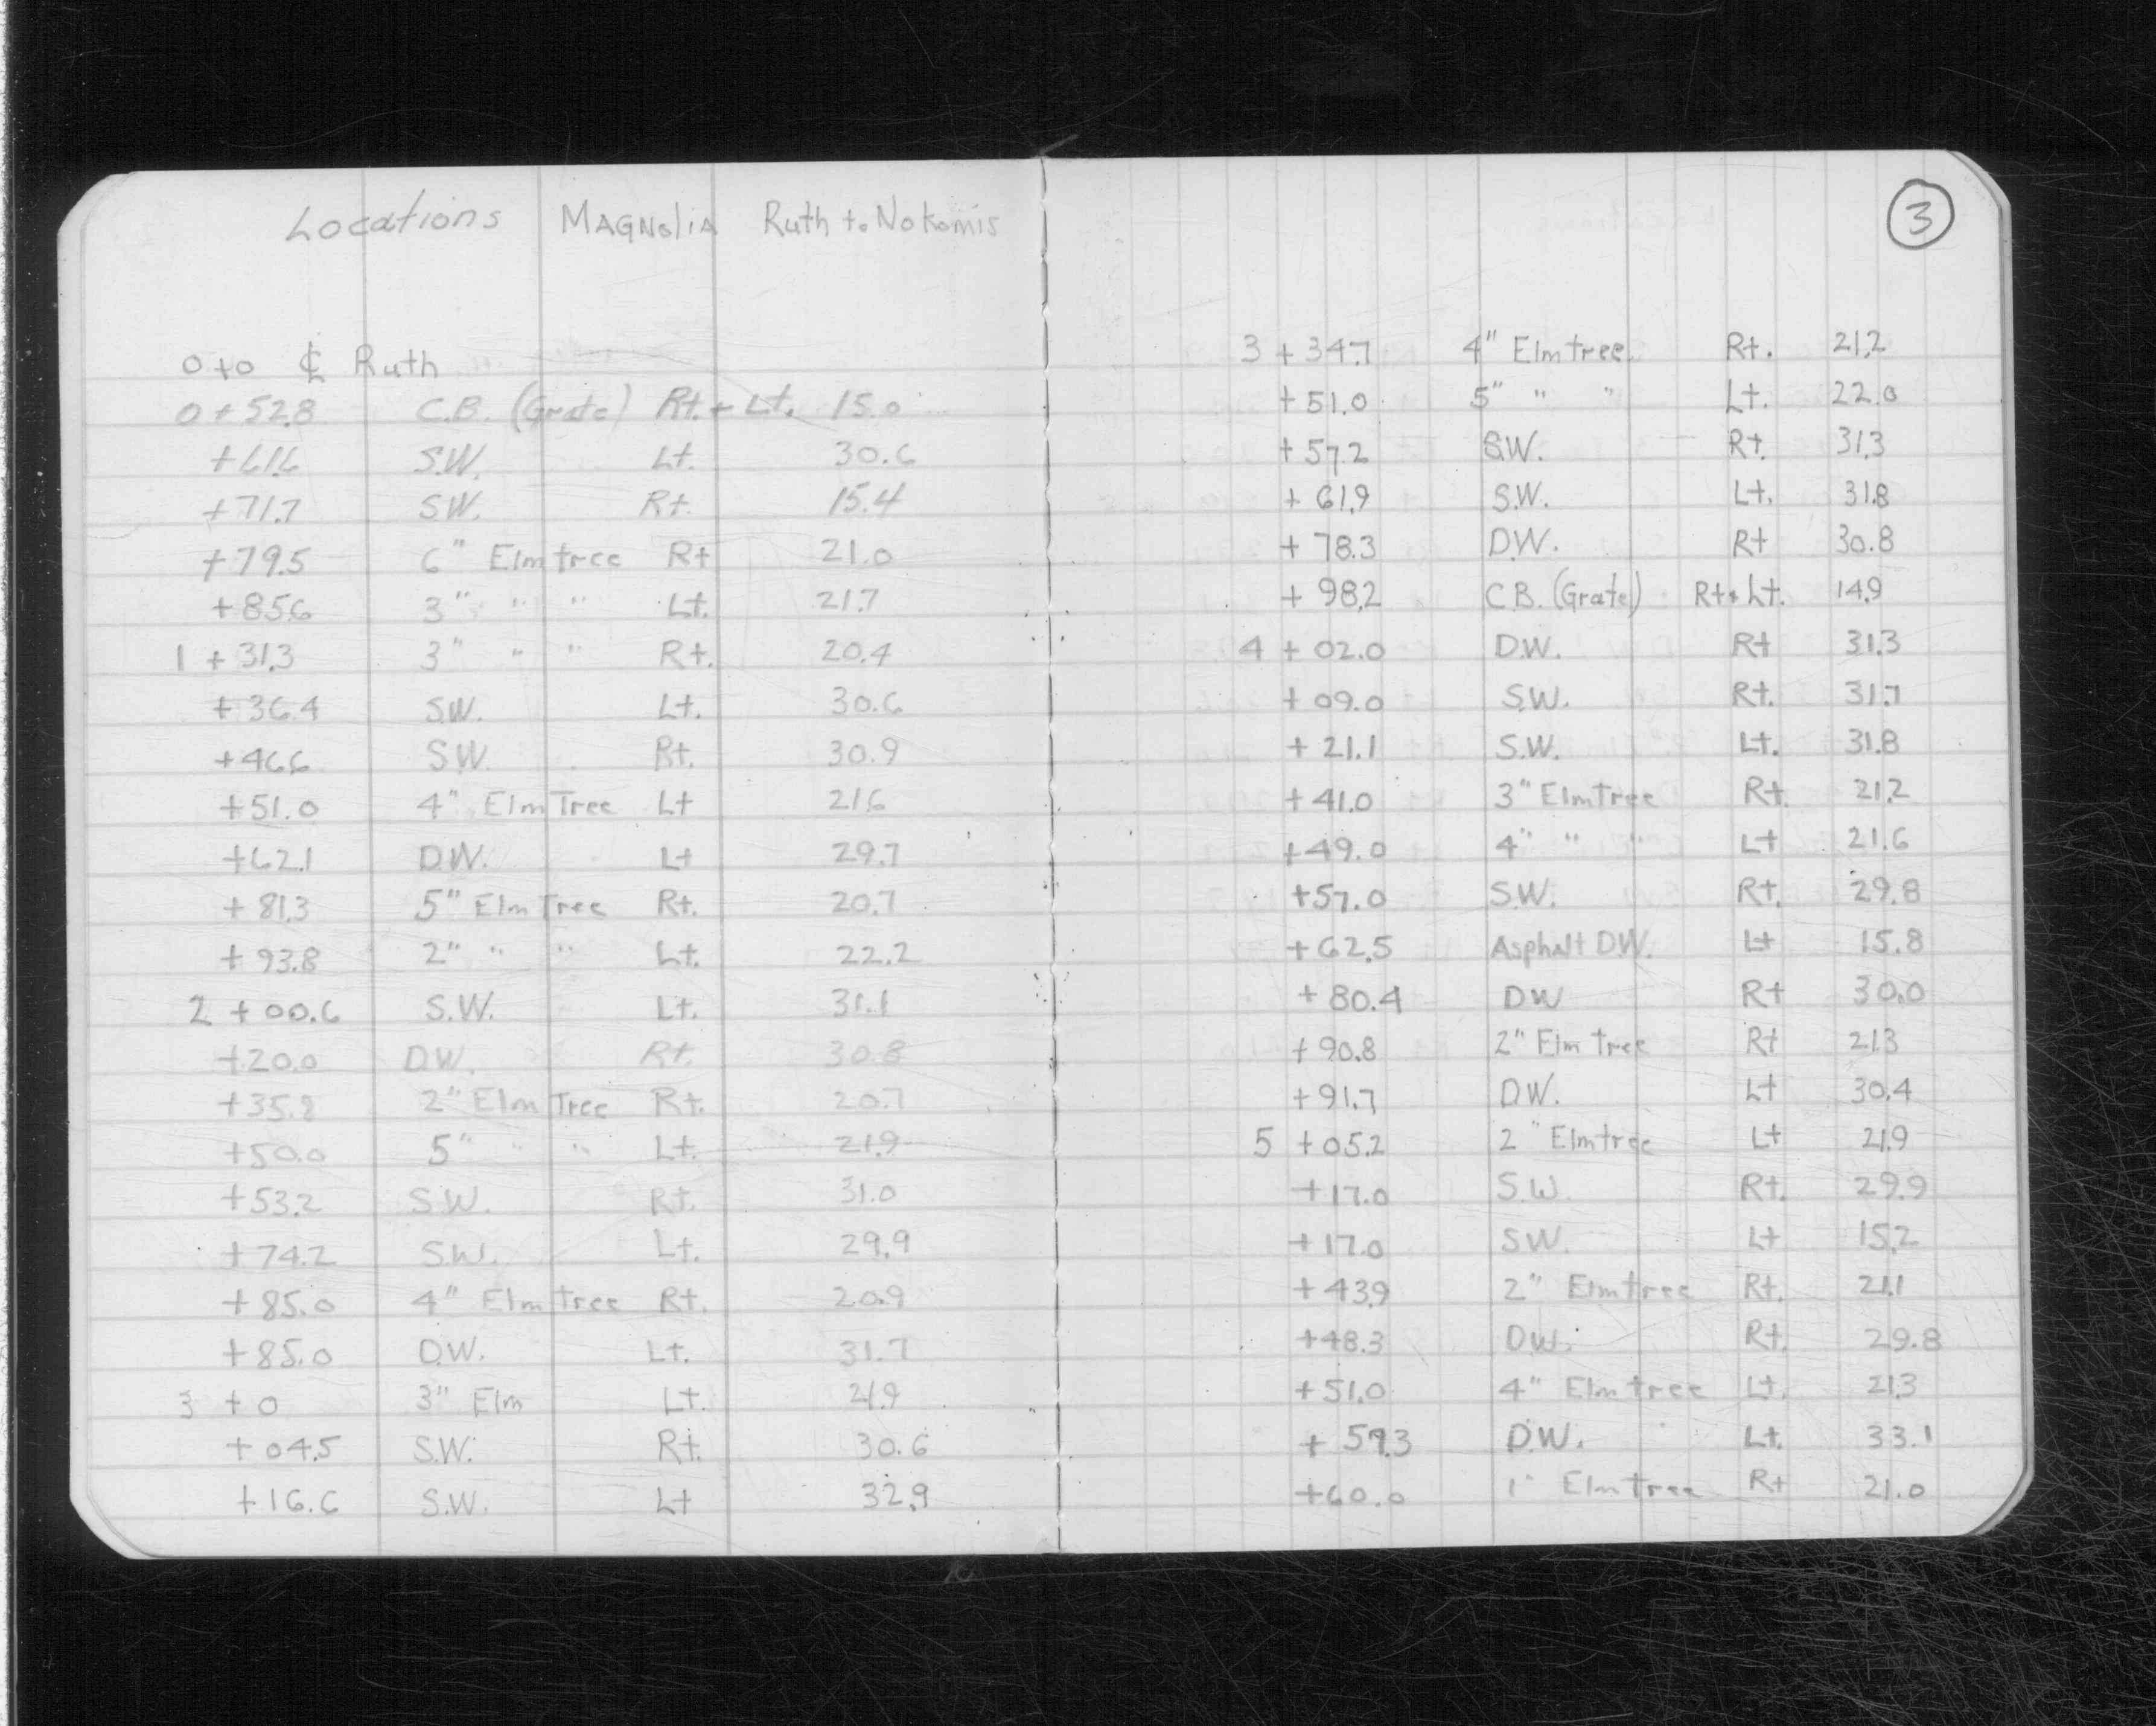 Locations MAGNOLIA Ruth to Nokomis
0+0 ℄ Ruth
0+52.8 C.B. (Grate) Rt. + Lt. 15.0
+61.6 S.W. Lt. 30.6
+71.7 S.W. Rt. 15.4
+79.5 6" Elm tree Rt 21.0
+85.6 3" " " Lt. 21.7
1+31.3 3" " " Rt. 20.4
+36.4 S.W. Lt. 30.6
+46.6 S.W. Rt. 30.9
+51.0 4" Elm Tree Lt 21.6
+62.1 D.W. Lt 29.7
+81.3 5" Elm Tree Rt. 20.7
+93.8 2" " " Lt. 22.2
2+00.6 S.W. Lt. 31.1
+20.0 D.W. Rt. 30.8
+35.8 2" Elm Tree Rt. 20.7
+50.0 5" " " Lt. 21.9
+53.2 S.W. Rt. 31.0
+74.2 S.W. Lt. 29.9
+85.0 4" Elm tree Rt. 20.9
+85.0 D.W. Lt. 31.7
3+0 3" Elm Lt. 21.9
+04.5 S.W. Rt. 30.6
+16.6 S.W. Lt 32.9
3
3+34.7 4" Elm tree Rt. 21.2
+51.0 5" " " Lt. 22.0
+57.2 S.W. Rt. 31.3
+61.9 S.W. Lt. 31.8
+78.3 D.W. Rt 30.8
+98.2 C.B. (Grate) Rt + Lt. 14.9
4+02.0 D.W. Rt 31.3
+09.0 S.W. Rt. 31.7
+21.1 S.W. Lt. 31.8
+41.0 3" Elm Tree Rt. 21.2
+49.0 4" " " Lt 21.6
+57.0 S.W. Rt. 29.8
+62.5 Asphalt D.W. Lt 15.8
+80.4 DW Rt 30.0
+90.8 2" Elm tree Rt 21.3
+91.7 D.W. Lt 30.4
5+05.2 2" Elm tree Lt 21.9
+17.0 S.W. Rt. 29.9
+17.0 SW. Lt 15.2
+43.9 2" Elm tree Rt. 21.1
+48.3 D.W. Rt. 29.8
+51.0 4" Elm tree Lt. 21.3
+59.3 D.W. Lt. 33.1
+60.0 1" Elm tree Rt 21.0